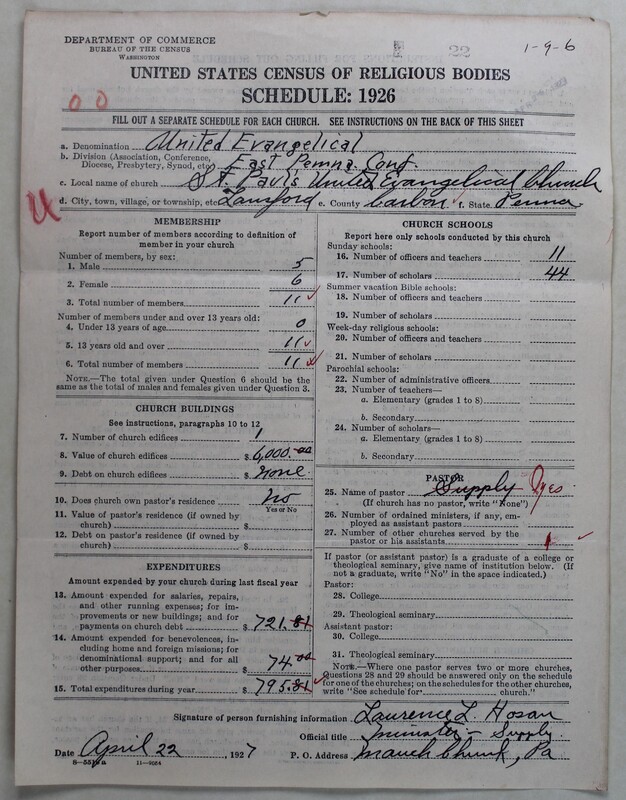 DEPARTMENT OF COMMERCE
BUREAU OF THE CENSUS
WASHINGTON
22
1-9-6
UNITED STATES CENSUS OF RELIGIOUS BODIES
SCHEDULE: 1926
00
FILL OUT A SEPARATE SCHEDULE FOR EACH CHURCH. SEE INSTRUCTIONS ON THE BACK OF THIS SHEET
a. Denomination United Evangelical
b. Division (Association, Conference, Diocese, Presbytery, Synod, etc.) East Penna. Conf.
c. Local name of church St. Paul's United Evangelical Church
U
d. City, town, village, or township, etc. Lansford e. County Carbon ✓ f. State Penna.
MEMBERSHIP
Report number of members according to definition of
member in your church
Number of members, by sex:
1. Male 5
2. Female 6
3. Total number of members 11 ✓
Number of members under and over 13 years old:
4. Under 13 years of age 0
5. 13 years old and over 11 ✓
6. Total number of members 11
NOTE.—The total given under Question 6 should be the
same as the total of males and females given under Question 3.
CHURCH BUILDINGS
See instructions, paragraphs 10 to 12
7. Number of church edifices 1
8. Value of church edifices $ 6,000.00
9. Debt on church edifices $ None
10. Does church own pastor's residence No
Yes or No
11. Value of pastor's residence (if owned by
church) $
12. Debt on pastor's residence (if owned by
church) $
EXPENDITURES
Amount expended by your church during last fiscal year
13. Amount expended for salaries, repairs,
and other running expenses; for im-
provements or new buildings; and for
payments on church debt $ 721.81
14. Amount expended for benevolences, in-
cluding home and foreign missions; for
denominational support; and for all
other purposes $ 74.00
15. Total expenditures during year $ 795.81 ✓
CHURCH SCHOOLS
Report here only schools conducted by this church
Sunday schools:
16. Number of officers and teachers 11
17. Number of scholars 44
Summer vacation Bible schools:
18. Number of officers and teachers
19. Number of scholars
Week-day religious schools:
20. Number of officers and teachers
21. Number of scholars
Parochial schools:
22. Number of administrative officers
23. Number of teachers—
a. Elementary (grades 1 to 8)
b. Secondary
24. Number of scholars—
a. Elementary (grades 1 to 8)
b. Secondary
PASTOR
25. Name of pastor Supply yes
(If church has no pastor, write "None")
26. Number of ordained ministers, if any, em-
ployed as assistant pastors
27. Number of other churches served by the
pastor or his assistants 1 ✓
If pastor (or assistant pastor) is a graduate of a college or
theological seminary, give name of institution below. (If
not a graduate, write "No" in the space indicated.)
Pastor:
28. College
29. Theological seminary
Assistant pastor:
30. College
31. Theological seminary
NOTE.—Where one pastor serves two or more churches,
Questions 28 and 29 should be answered only on the schedule
for one of the churches; on the schedules for the other churches,
write "See schedule for church."
Signature of person furnishing information Laurence L. Hosan
Official title Minister - Supply
Date April 22, 1927 P. O. Address Mauch Chunk, Pa
8-551a 11-9064